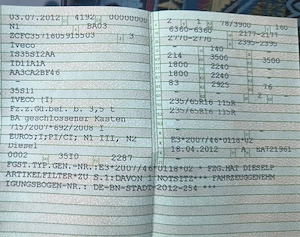 03.07.2012 4192 00000000 2 1 78/3900 160
N1 BA03 6360-6360 2177-2177
ZCFC3571605915503 3 2770-2770 2395-2395
Iveco 140
IS35SI2AA 214 3500 3500
TD11A1A 1800 1800
AA3CA2BF46 2240 2240
- 83 2925 76
35S11 2
IVECO (I) 235/65R16 115R
Fz.z.Gü.bef. b. 3,5 t 235/65R16 115R
BA geschlossener Kasten -
715/2007*692/2008 I
EURO5;I;PI/CI; N1 III, N2 E3*2007/46*0118*02
Diesel 18.04.2012 A EA721961
0002 35I0 2287
FGST.TYP.GEN.-NR.:E3*2007/46*0118*02 * FZG.HAT DIESELP
ARTIKELFILTER*ZU S.1:DAVON 1 NOTSITZ** FAHRZEUGGENEHM
IGUNGSBOGEN-NR.: DE-BN-STADT-2012-254 ***